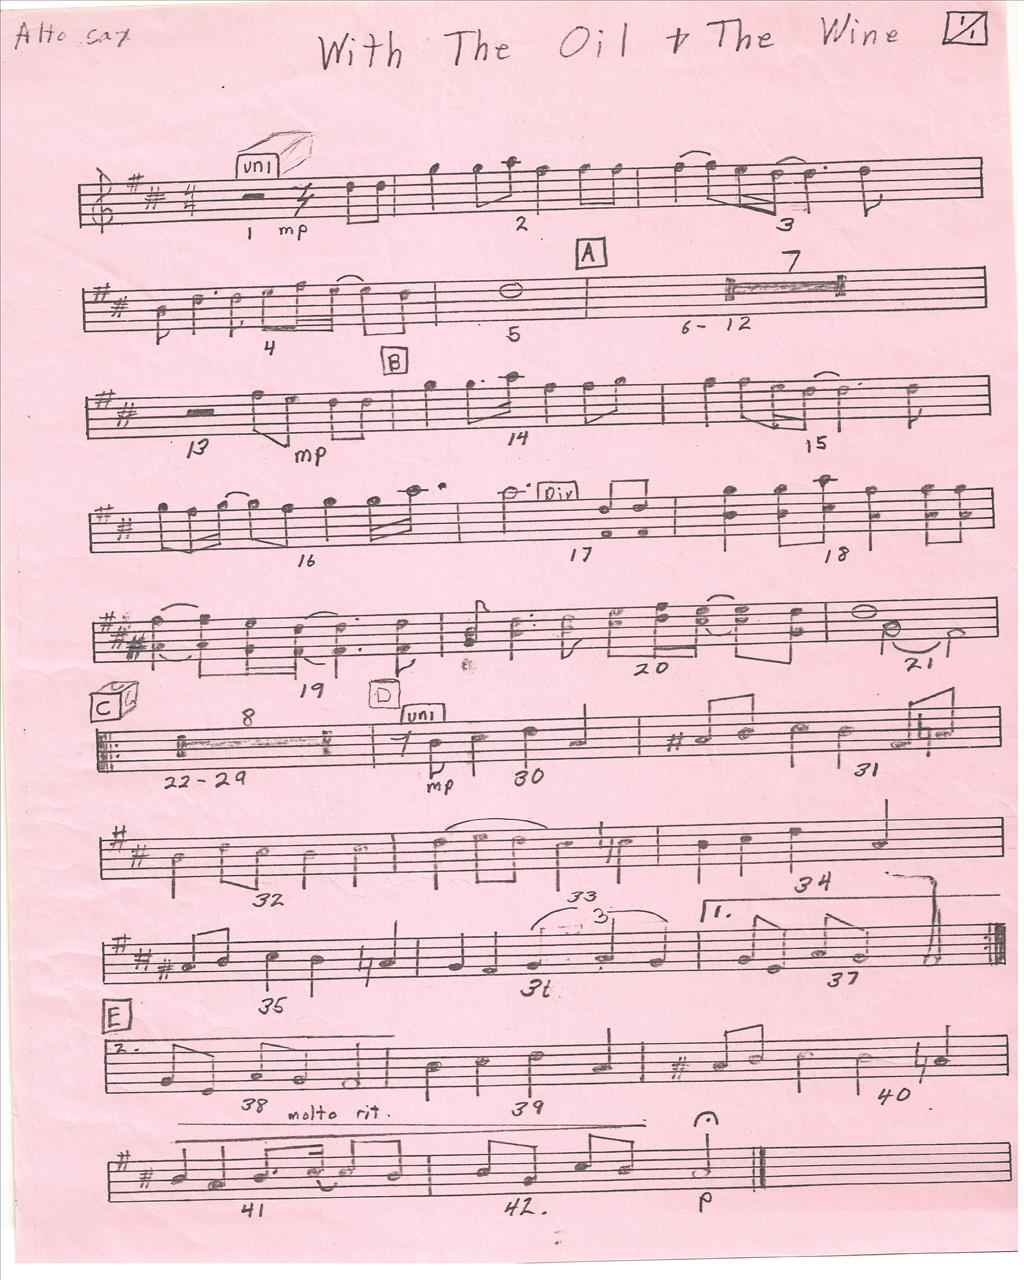 Alto sax
With The Oil + The Wine
1/1
uni
4/4
1 mp 2 3
A
7
4 5 6 - 12
B
13 mp 14 15
Div
16 17 18
19 20 21
C D
8 uni
22 - 29 mp 30 31
32 33 34
3 1.
35 37
E
2.
38 39 40
molto rit.
41 42. p